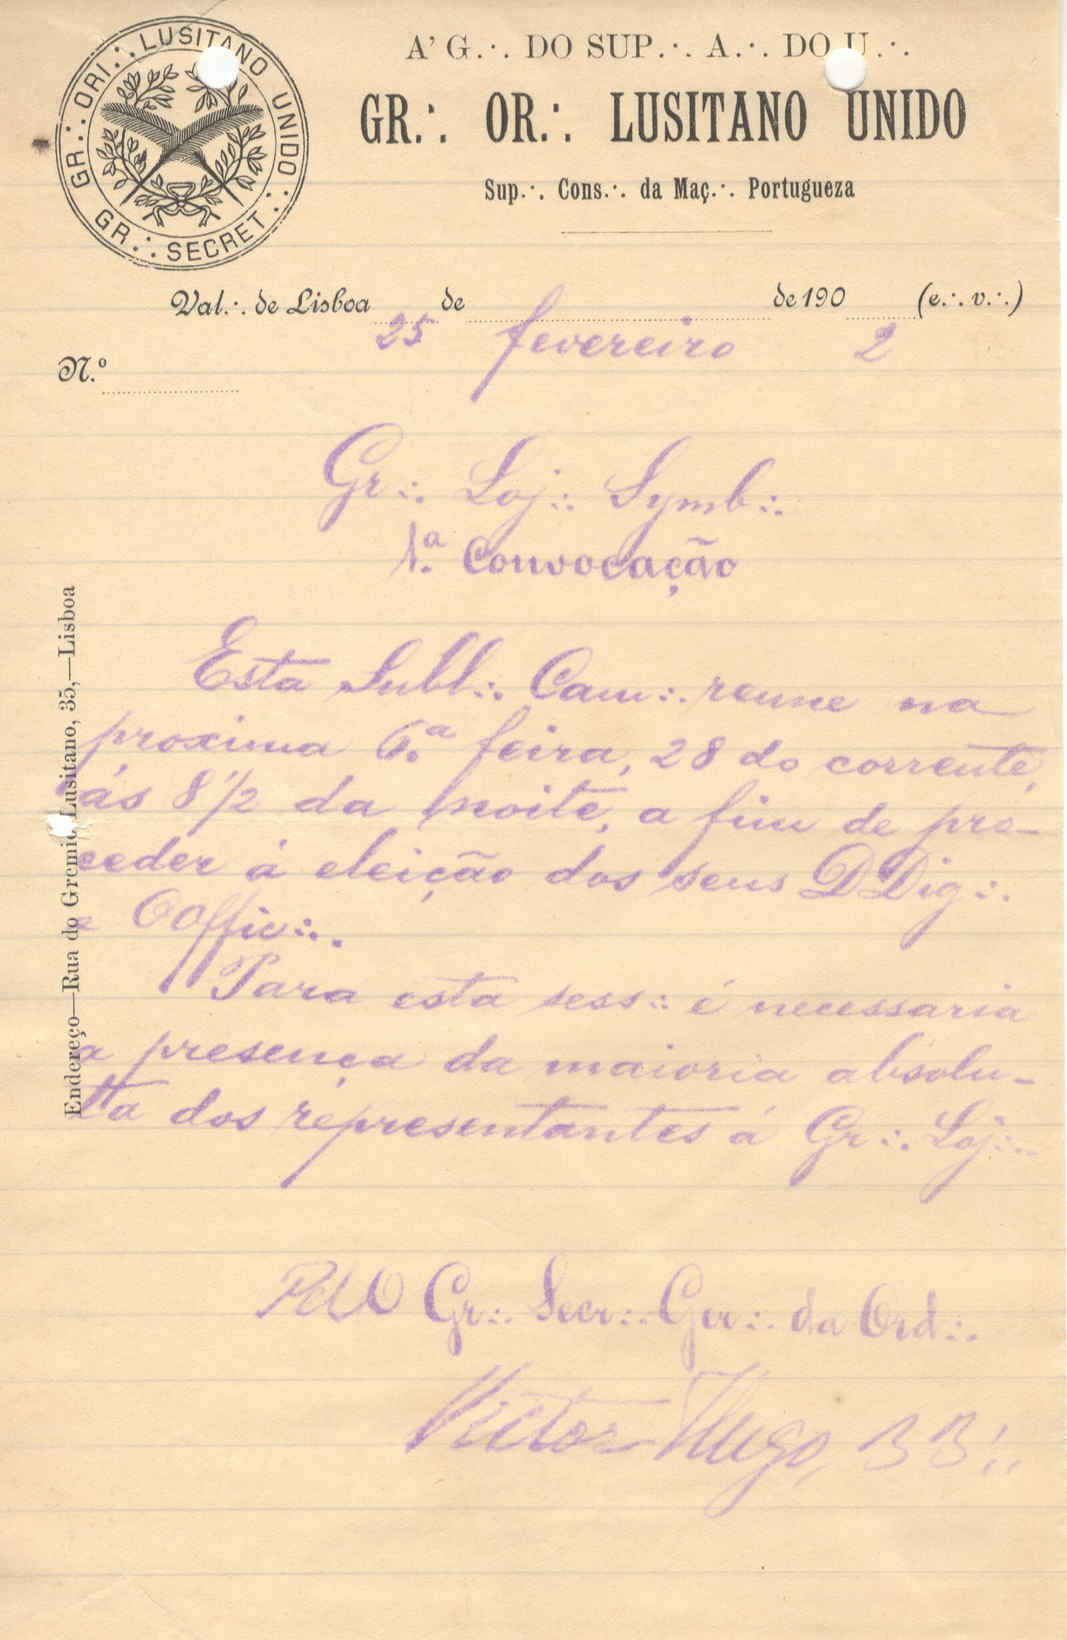 GR.·. ORI.·. LUSITANO UNIDO.·.
GR.·. SECRET.·.
A' G.·. DO SUP.·. A.·. DO U.·.
GR.·. OR.·. LUSITANO UNIDO
Sup.·. Cons.·. da Maç.·. Portugueza
Val.·. de Lisboa 25 de fevereiro de 1902 (e.·. v.·.)
N.º
Gr.·. Loj.·. Symb.·.
1.ª Convocação
Esta Subl.·. Cam.·. reune na
proxima 6.ª feira, 28 do corrente,
ás 8 1/2 da noite, a fim de pro-
ceder á eleição dos seus DDig.·.
e OOffic.·.
Para esta sess.·. é necessaria
a presença da maioria absolu-
ta dos representantes á Gr.·. Loj.·.
Gr.·. Secr.·. Ger.·. da Ord.·.
Victor Hugo, 33.·.
Endereço—Rua do Gremio Lusitano, 35,—Lisboa